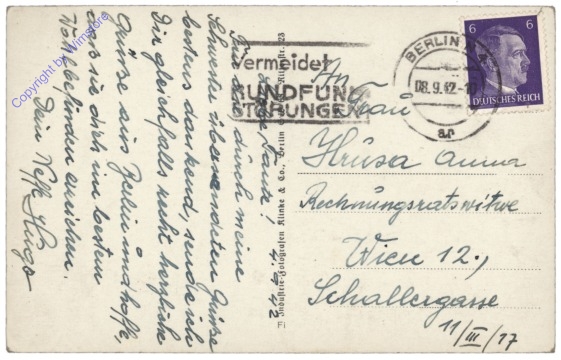 4.9.42
Liebe Tante!
Für die durch meine
Schwester übersandten Grüsse
bestens dankend, sende ich
Dir gleichfalls recht herzliche
Grüsse aus Berlin und hoffe,
dass sie dich im besten
Wohlbefinden erreichen.
Dein Neffe Hugo
Industrie-Fotografen Klinke & Co., Berlin
123
Vermeidet
RUNDFUNK
STÖRUNGEN
BERLIN
08.9.42
ar
6 6
DEUTSCHES REICH
An
Frau
Hrusa Anna
Rechnungsratswitwe
Wien 12.,
Schallergasse
11/III/17
Copyright by Winstore